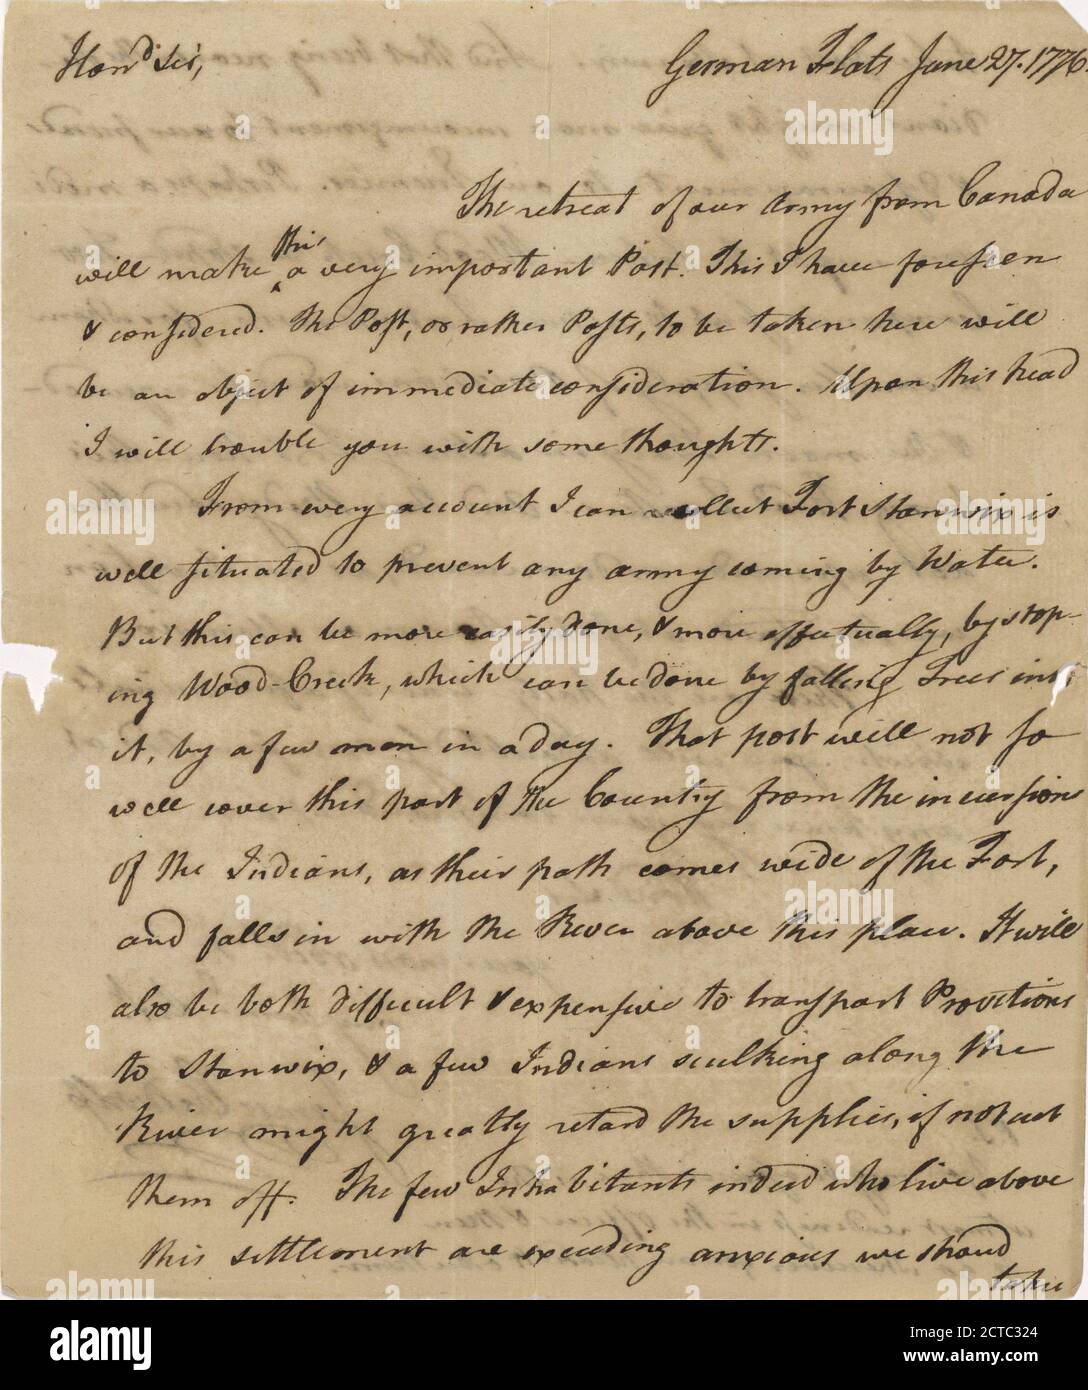 Hond Sir,
German Flats June 27. 1776.
The retreat of our Army from Canada
this
will make ‸ a very important Post. This I have foreseen
& considered. The Post, or rather Posts, to be taken here will
be an object of immediate consideration. Upon this head
I will trouble you with some thoughts.
From every account I can collect Fort Stanwix is
well situated to prevent any army coming by Water.
But this can be more easily done, & more effectually, by stop-
ing Wood-Creek, which can be done by falling Trees into
it, by a few men in a day. That post will not so
well cover this part of the Country from the incursions
of the Indians, as their path comes wide of the Fort,
and falls in with the River above this place. It will
also be both difficult & expensive to transport Provitions
to Stanwix, & a few Indians sculking along the
River might greatly retard the supplies, if not cut
them off. The few Inhabitants indeed who live above
this settlement are exceeding anxious we shoud
take
alamy
Image ID: 2CTC324
www.alamy.com